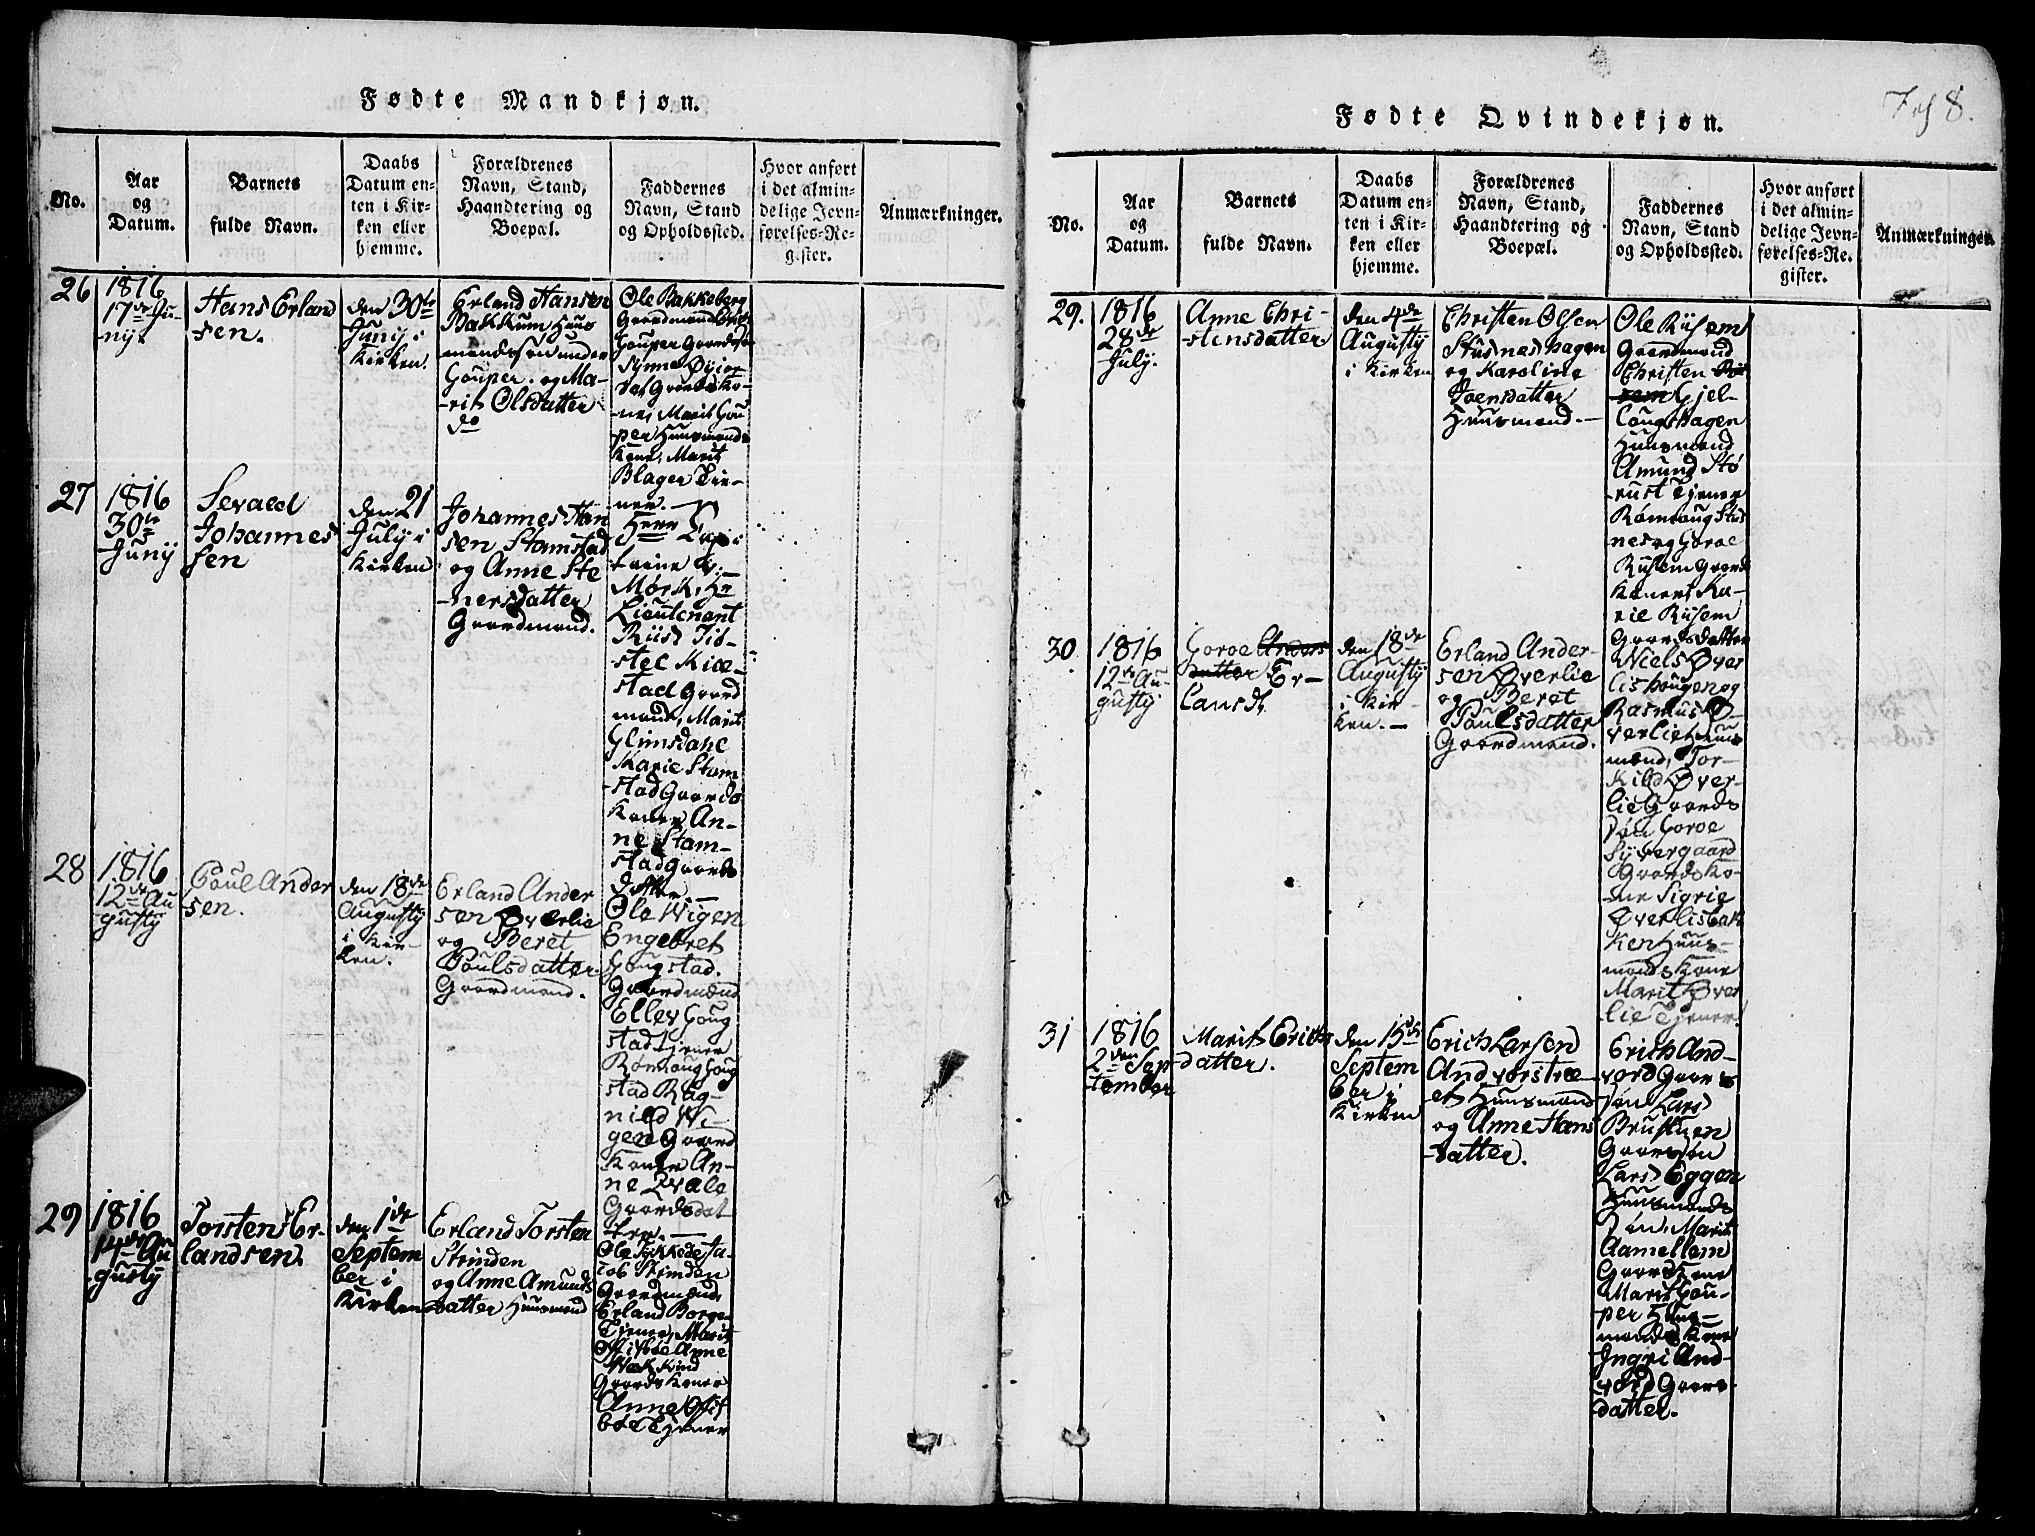 Fødte Mandkjøn.
No.
Aar
og
Datum.
Barnets
fulde Navn.
Daabs
Datum en-
ten i Kir-
ken eller
hjemme.
Forældrenes
Navn, Stand,
Haandtering og
Boepæl.
Faddernes
Navn, Stand
og Opholdssted.
Hvor anført
i det almin-
delige Jevn-
førelses-Re-
gister.
Anmærkninger.
26
1816
17de Ju-
nij.
Hans Erland
sen.
den 30te
Junij i
Kirken.
Erland Hansen
Bakkum Huus
mandssøn under
Gouper. og Ma-
rit Olsdatter
do
Ole Bakkeberg
Gaardmand
Gouper Gaards
Synne Øijor
dal Gaards Ko-
ne, Marit Gou
per Huusmands
Kone, Marit
Blager Tie-
ner.
27
1816
30te
Junij
Sevald
Johannes
sen
den 21
Julij i
Kirken
Johannes Han
sen Stamstad
og Anne Ste
nersdatter
Gaardmand.
Herr Capi
taine v:
Mørk, Hr
Lieutenant
Riis
stel Kice
stad Gaard
mænd, Marit
Glimsdahl
Karie Stam
stad Gaards
Koner An-
ne Stam-
stad Gaards
datter.
28
1816
12de Au
gustij
Poul Ander
sen.
den 18de
Augustij
i Kir-
ken.
Erland Ander
sen Øverlie
og Beret
Poulsdatter
Gaardmand.
Ole Wigen
Engebret
Gougstad.
Gaardmænd
Ellev Goug
stad Tjener
Rømoug Goug
stad Rag-
nild Wi-
gen Gaard
Koner An-
ne Qvale
Gaardsdat
ter.
29
1816
14de Au
gustij
Torsten Er-
landsen.
den 1de
Septem
ber i
Kirken
Erland Torsten
Strinden
og Anne Amunds
datter Huusmand
Ole Sykkede Ja-
cob Strinden
Gaardmænd,
Erland Borgen
Tjener, Marit
Anne
Gaards Koner
Anne
boe Tjener
Fødte Qvindekjøn.
Fol 8.
No.
Aar
og
Datum.
Barnets
fulde Navn.
Daabs
Datum en-
ten i Kir-
ken eller
hjemme.
Forældrenes
Navn, Stand,
Haandtering og
Boepæl.
Faddernes
Navn, Stand,
og Opholdssted.
Hvor anført
i det almin-
delige Jevn-
førelses-Re-
gister.
Anmærkningen.
29.
1816
28de
Julij.
Anne Chri-
stensdatter
den 4de
Augustij
i Kirken
Christen Olsen
Stusneshagen
og Karoline
Joensdatter
Huusmand.
Ole Rusem
Gaardmand
Christen
Gjel-
lougshagen
Huusmand
Amund Stø
rust Tjener
Rømoug Stus
nes og Goroe
Rusem Gaard
Koner, Ka-
rie Rusem
Gaardsdatter
30
1816
12de Au-
gustij
Goroe Anders
datter Er-
lansdr
den 18de
Augustij
i Kir-
ken.
Erland Ander-
sen Øverlie
og Beret
Poulsdatter
Gaardmand.
Niels Øver
lishougen og
Rasmus Ø-
verlie Huus
mænd, Tor-
kild Øver-
lie Gaards
søn Goroe
Syvergaard
Gaards Ko-
ne Sigrie
Øverlisbak
ken Huus-
mands Kone
Marit Øver
lie Tjener.
31
1816
2den Sep
tember
Marit Erichs
datter.
den 15de
Septem
ber i
Kirken
Erich Larsen
Andvorstræ-
et Huusmand
og Anne Hans
datter.
Erich And-
vord Gaards
søn Lars
Brustuen
Gaardsøn
Lars Eggen
Huusmands
søn, Marit
Aamellem
Gaards Kone
Marit Gou-
per Huus-
mands Kone
Ingri And-
vord Gaars-
datter.